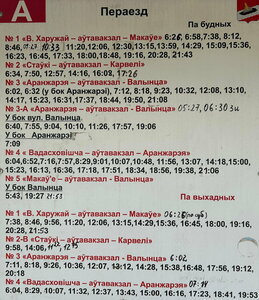 А
Пераезд
Па будных
№ 1 «В. Харужай – аўтавакзал – Макаўе» 6:26, 6:58,7:38, 8:12,
8:46, 09.27 10.33 11:20,12:06, 12:30,13:15,13:59, 14:29, 15:09,15:36,
16:23, 16:45, 17:33, 18:00,18:48, 19:16, 20:28, 21:43
№ 2 «Стаўкі – аўтавакзал – Карвелі»
6:34, 7:50, 12:57, 14:16, 16:08, 17:26
№ 3 «Аранжарэя – аўтавакзал - Валынца»
6:02, 6:32 (у бок Аранжарэі), 7:12, 8:18, 9:23, 10:32, 12:08, 13:10,
14:17, 15:23, 16:31,17:37, 18:44, 19:50, 21:08
№ 3-А «Аранжарэя – аўтавакзал - Валынца» 05:27, 06:30
У бок вул. Валынца
6:40, 7:55, 9:04, 10:10, 11:26, 17:57, 19:06
У бок Аранжарэі
7:09
№ 4 « Вадасховішча – Аранжарэя»
6:04,6:52,7:16,7:57,8:29,9:01,10:07,10:48, 11:56, 13:07, 14:18,15:00,
15:23, 16:13, 16:36, 17:18, 17:51, 18:34, 18:56, 19:21, 20:18, 21:15
№ 5 «Макаўе – аўтавакзал - Валынца»
У бок Валынца
5:43, 19:27 21:53
Па выхадных
№ 1 «В. Харужай – аўтавакзал – Макаўе» 06:26
7:38, 8:46, 9:56, 11:20, 12:06, 13:15,14:29,15:36, 16:45, 18:00, 19:16,
20:28, 21:53
№ 2-В «Стаўкі – аўтавакзал – Карвелі»
9:58, 14:06,
№ 3 «Аранжарэя – аўтавакзал - Валынца» 6:02
7:11, 8:18, 9:26, 10:36, 12:07, 13:12, 14:28, 15:38,16:48, 17:56, 19:12,
20:18
№ 4 «Вадасховішча – аўтавакзал – Аранжарэя» 07:14
6:04,8:29, 10:07, 11:32, 12:37, 13:43, 15:00, 16:16, 17:23, 18:41, 19:53